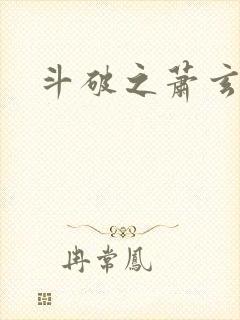 斗破之萧玄
冉常凤